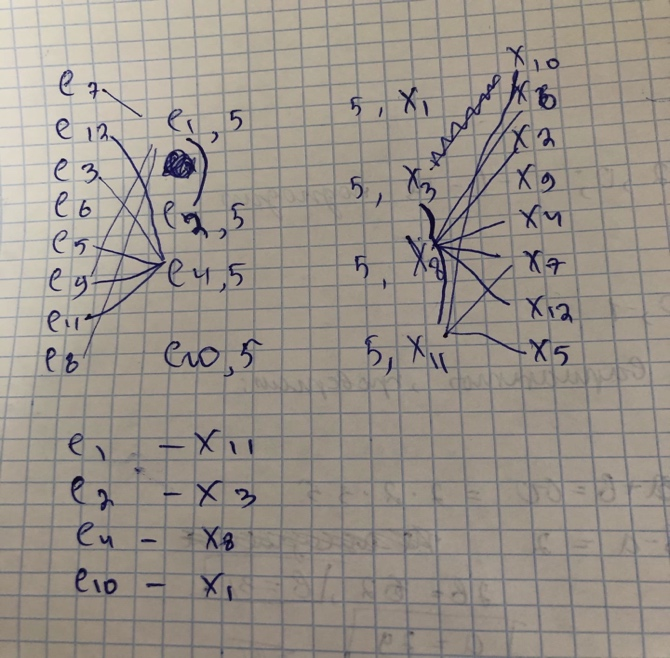 e7
e12
e3
e6
e5
e9
e11
e8
e1, 5
e2, 5
e4, 5
e10, 5
5, x1
5, x3
5, x8
5, x11
x10
x6
x2
x9
x4
x7
x12
x5
e1 – x11
e2 – x3
e4 – x8
e10 – x1